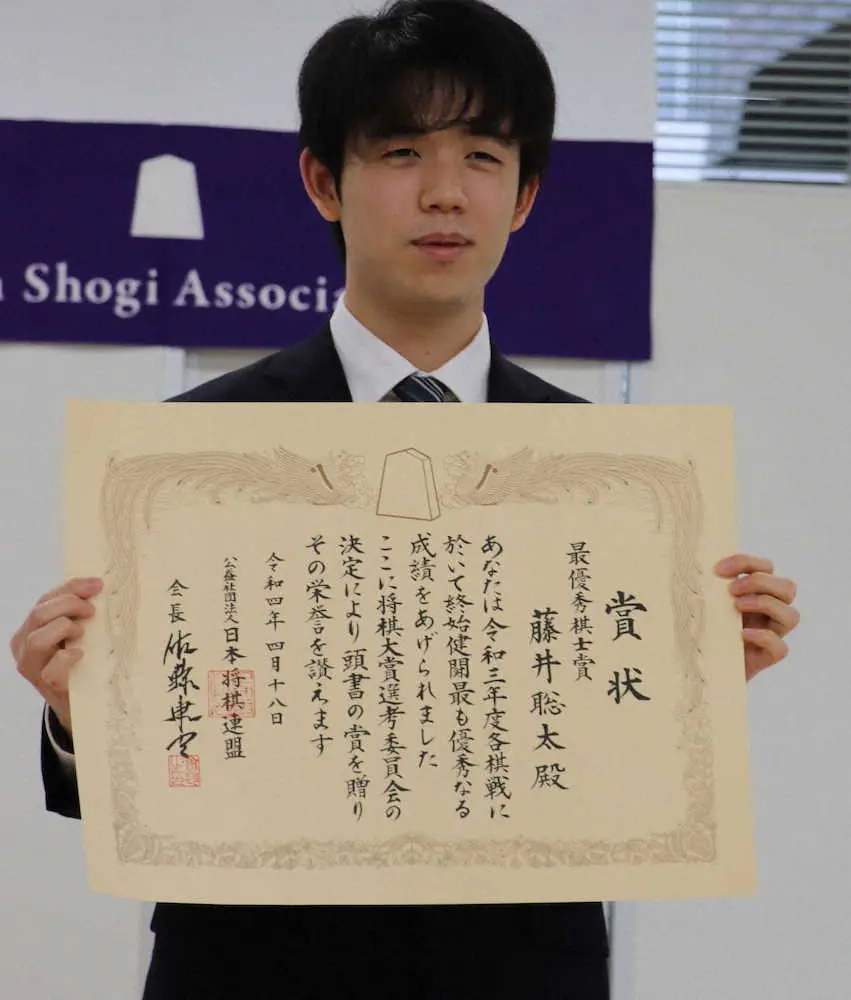 Shogi Associa
賞状
最優秀棋士賞
藤井聡太殿
あなたは令和三年度各棋戦に
於いて終始健闘最も優秀なる
成績をあげられました
ここに将棋大賞選考委員会の
決定により頭書の賞を贈り
その栄誉を讃えます
令和四年四月十八日
公益社団法人日本将棋連盟
会長 佐藤康光